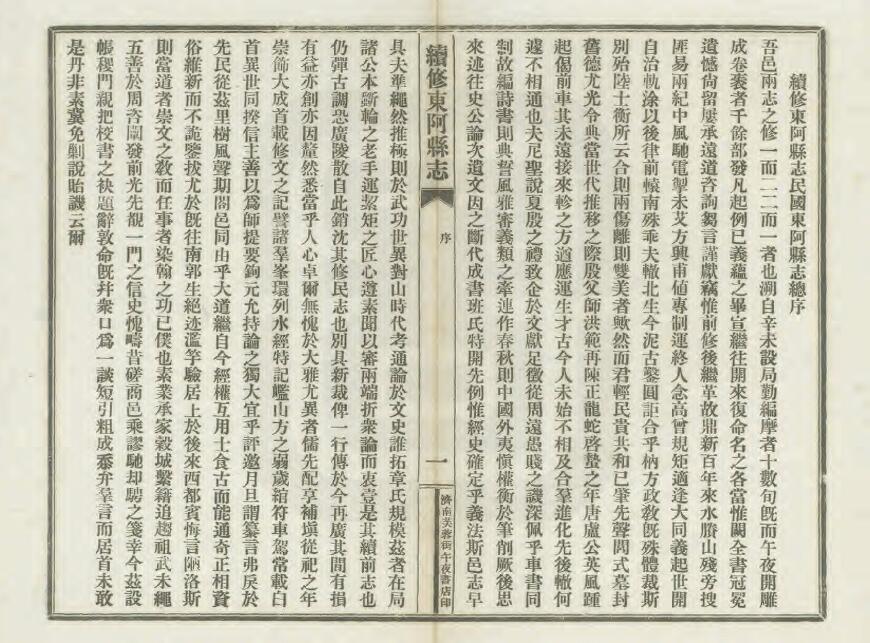 續修東阿縣志民國東阿縣志總序
吾邑兩志之修一而二二而一者也溯自辛未設局勤編摩者十數旬既而午夜開雕
成卷袠者千餘部發凡起例已義蘊之畢宣繼往開來復命名之各當惟闕全書冠冕
遺憾尙留屢承遠道咨詢芻言謹獻竊惟前修後繼革故鼎新百年來水賸山殘旁搜
匪易兩紀中風馳電掣未艾方興甫値專制運終人念高曾規矩適逢大同義起世開
自治軌涂以後律前轅南殊乖夫轍北生今泥古鑿圓詎合乎枘方政敎既殊體裁斯
別殆陸士衡所云合則兩傷離則雙美者歟然而君輕民貴共和已肇先聲閎式墓封
舊德尤光令典當世代推移之際殷父師洪範再陳正龍蛇啓蟄之年唐盧公英風踵
起偈前車其未遠接來軫之方遒應運生才古今人未始不相及合羣進化先後轍何
遽不相通也夫尼聖說夏殷之禮致企於文獻足徵從周遠愚賤之譏深佩乎車書同
制故編詩書則典誓風雅審義類之牽連作春秋則中國外夷愼權衡於筆削厥後思
來述往史公論次遺文因之斷代成書班氏特開先例惟經史確定乎義法斯邑志早
續修東阿縣志
序
一
濟南芙蓉街午夜書店印
具夫準繩然推極則於武功世異對山時代考通論於文史誰拓章氏規模茲者在局
諸公本斲輪之老手運絜矩之匠心遵素聞以審兩端折衆論而衷壹是其續前志也
仍彈古調恐廣陵散自此銷沈其修民志也別具新裁俾一行傳於今再廣其間有損
有益亦創亦因釐然悉當乎人心卓爾無愧於大雅尤異者儒先配享補塡從祀之年
崇飾大成首載修文之記譬諸羣峯環列水經特記巂山方之弱歲綰符車駕常載白
首異世同揆信主善以爲師提要鉤元允持論之獨大宜乎評邀月旦謂纂言弗戾於
先民從茲里樹風聲期闔邑同由乎大道繼自今經權互用士食古而能通奇正相資
俗維新而不詭鑒拔尤於既往南郭生絕迹濫竽驗居上於後來西都賓悔言陋洛斯
則當道者崇文之敎而任事者染翰之功已僕也素業承家穀城繫籍追趨祖武未繩
五善於周咨闡發前光先覩一門之信史愧疇昔磋商邑乘謬馳却聘之箋幸今茲設
帳稷門親把校書之袂題辭敦命既幷衆口爲一談短引粗成忝弁羣言而居首未敢
是丹非素冀免剿說貽譏云爾